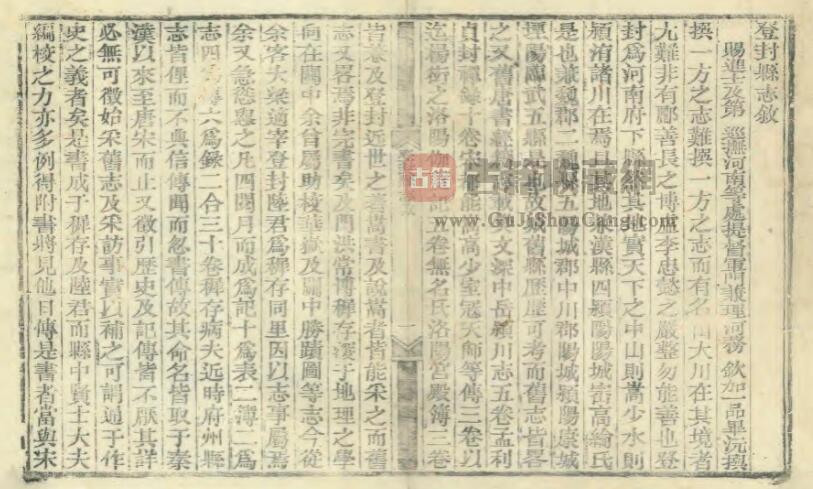 登封縣志敘
賜進士及第 巡撫河南等處提督軍門兼理河務 欽加一品畢沅撰
撰一方之志難撰一方之志而有名山大川在其境者
尤難非有酈善長之博李忠懿之嚴整勿能善也登
封爲河南府下縣其地實天下之中山則嵩少水則
潁洧諸川在焉其地東漢縣四潁陽陽城崈高綸氏
是也魏郡二縣五陽城郡中川郡陽城潁陽康城
堙陽顯武五縣是也故城舊縣歷歷可考而舊志皆畧
之又舊唐書經籍載文深中岳潁川志五卷孟利
貞封禪錄十卷宋能嵩高少室寇天師等傳三卷以
迄楊衒之洛陽伽藍記五卷無名氏洛陽宮殿簿三卷
皆及登封近世之著嵩書及說嵩者皆能采之而舊
志又畧焉非完書矣及門洪常博穉存深于地理之學
向在關中余曾屬助校華嶽及關中勝蹟圖等志今從
余客大梁適宰登封陸君爲穉存同里因以志事屬焉
余又急慫恿之凡四閱月而成爲記十爲表二簿一爲
志四爲傳六爲錄二合三十卷穉存病夫近時府州縣
志皆俚而不典信傳聞而忽書傳故其命名皆取于秦
漢以來至唐宋而止又徵引歷史及記傳皆不厭其詳
必無可徵始采舊志及采訪事實以補之可謂通于作
史之義者矣是書成于穉存及陸君而縣中賢士大夫
編校之力亦多例得附書將見他日傳是書者當與宋
古籍
www.GuJiShouCang.com